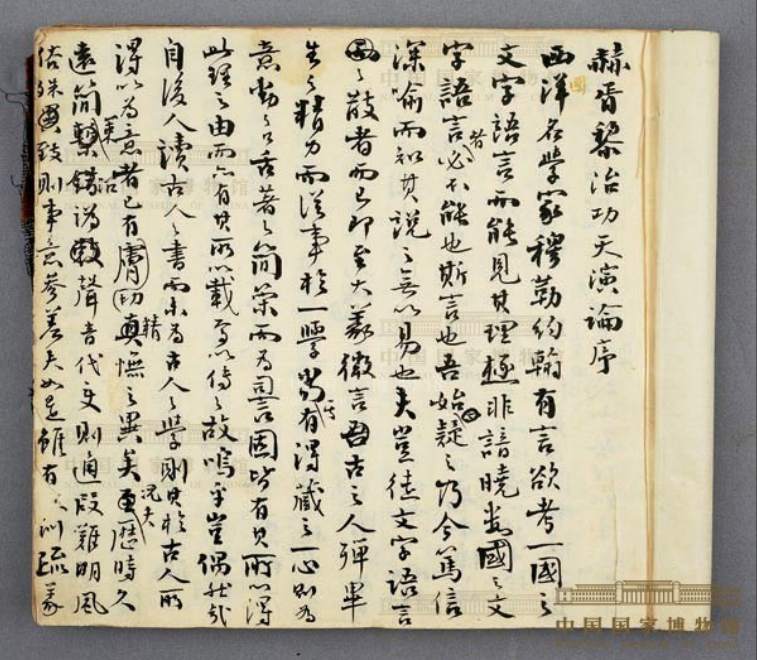 赫胥黎治功天演論序
西洋名學家穆勒約翰有言欲考一國之
文字語言而能見其理極非諳曉數國之文
字語言者必不能也斯言也吾始疑之乃今篤信
深喻而知其說之無以易也夫豈徒文字語言
之散者而已即至大義微言古之人殫畢
生之精力而從事於一學當其有得藏之一心則為
意動之口舌著之簡策而為詞固皆有其所以得
此理之由而亦有其所以載焉以傳之故嗚乎豈偶然哉
自後人讀古人之書而未為古人之學則其於古人所
得以為意者已有膚切精憮之異矣況夫歷時久
遠簡沿譌聲音代變則通叚難明風
俗殊致則事意參差夫如是雖有訓疏義
中国国家博物馆